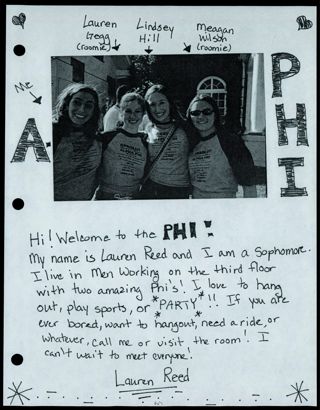 Lauren Gregg (roomie)
Lindsey Hill
Meagan Wilson (roomie)
Me
A.
PHI
Hi! Welcome to the PHI!
My name is Lauren Reed and I am a Sophomore.
I live in Men Working on the third floor
with two amazing Phi's! I love to hang
out, play sports, or *PARTY*!! If you are
ever bored, want to *hangout*, need a ride, or
whatever, call me or visit the room! I
can't wait to meet everyone!
Lauren Reed